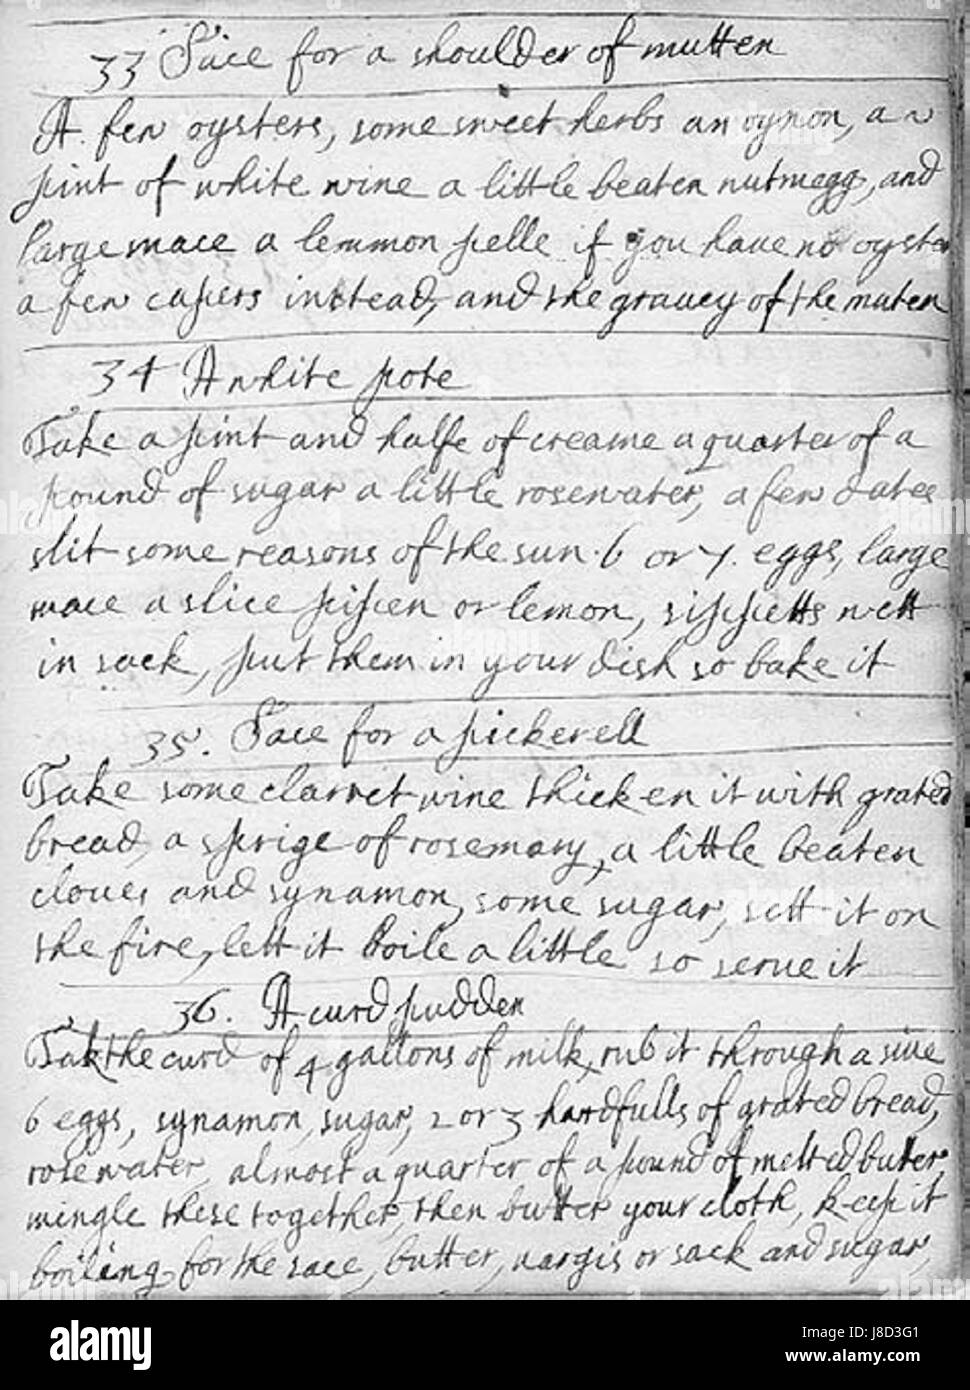 33 Sace for a shoulder of mutten
A few oysters, some sweet herbs an oynon, a
pint of white wine a little beaten nutmegg, and
large mace a lemmon pelle if you have no oyster
a few capers instead, and the gravey of the muten
34 A white pote
Take a pint and halfe of creame a quarter of a
pound of sugar a little rosewater, a few dates
slit some reasons of the sun. 6 or 7. eggs, large
mace a slice pipen or lemon, sippetts wett
in sack, put them in your dish so bake it
35. Sace for a pickerell
Take some clarret wine thicken it with grated
bread, a sprige of rosemary, a little beaten
cloves and synamon, some sugar, sett it on
the fire, lett it boile a little so serve it
36. A curd pudden
Tak the curd of 4 gallons of milk, rub it through a sive
6 eggs, synamon, sugar, 2 or 3 handfulls of grated bread,
rosewater, almost a quarter of a pound of melted butter,
mingle these together, then butter your cloth, keep it
boiling for the sace, butter, vargis or sack and sugar,
alamy
Image ID: J8D3G1
www.alamy.com